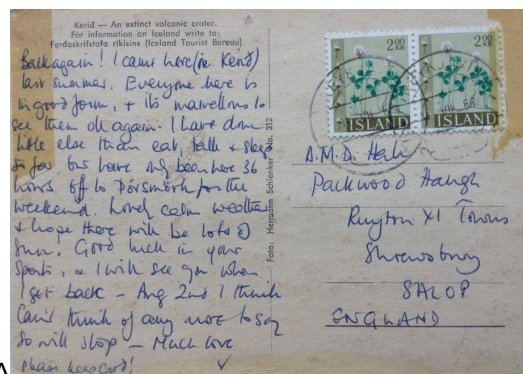 Kerið — An extinct volcanic crater.
For information on Iceland write to
Ferðaskrifstofa ríkisins (Iceland Tourist Bureau)
Back again! I came here (ie. Kerið)
last summer. Everyone here is
in good form, & its marvellous to
see them all again. I have done
little else than eat, talk & sleep
so far, but have only been here 36
hours. Off to Þórsmörk for the
weekend. Lovely calm weather
& hope there will be lots of
sun. Good luck in your
sports, & I will see you when
I get back – Aug 2nd I think
Can't think of any more to say
so will stop – Much love
please keep card!
Foto: Hermann Schlenker No. 312
2.00
KR
ÍSLAND
2.00
KR
ÍSLAND
A.M.D.
Packwood Haugh
Ruyton XI Towns
Shrewsbury
SALOP
ENGLAND